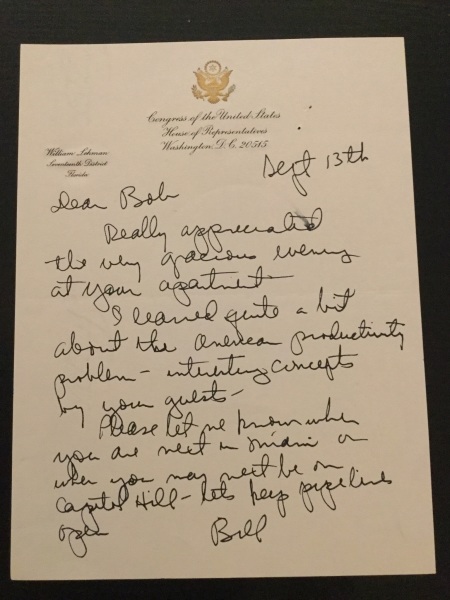 Congress of the United States
House of Representatives
Washington, D.C. 20515
William Lehman
Seventeenth District
Florida
Sept 13th
Dear Bob
Really appreciated
the very gracious evening
at your apartment -
I learned quite a bit
about the American productivity
problem - interesting concepts
by your guests -
Please let me know when
you are next in Miami or
when you may next be on
Capitol Hill - lets keep pipelines
open
Bill